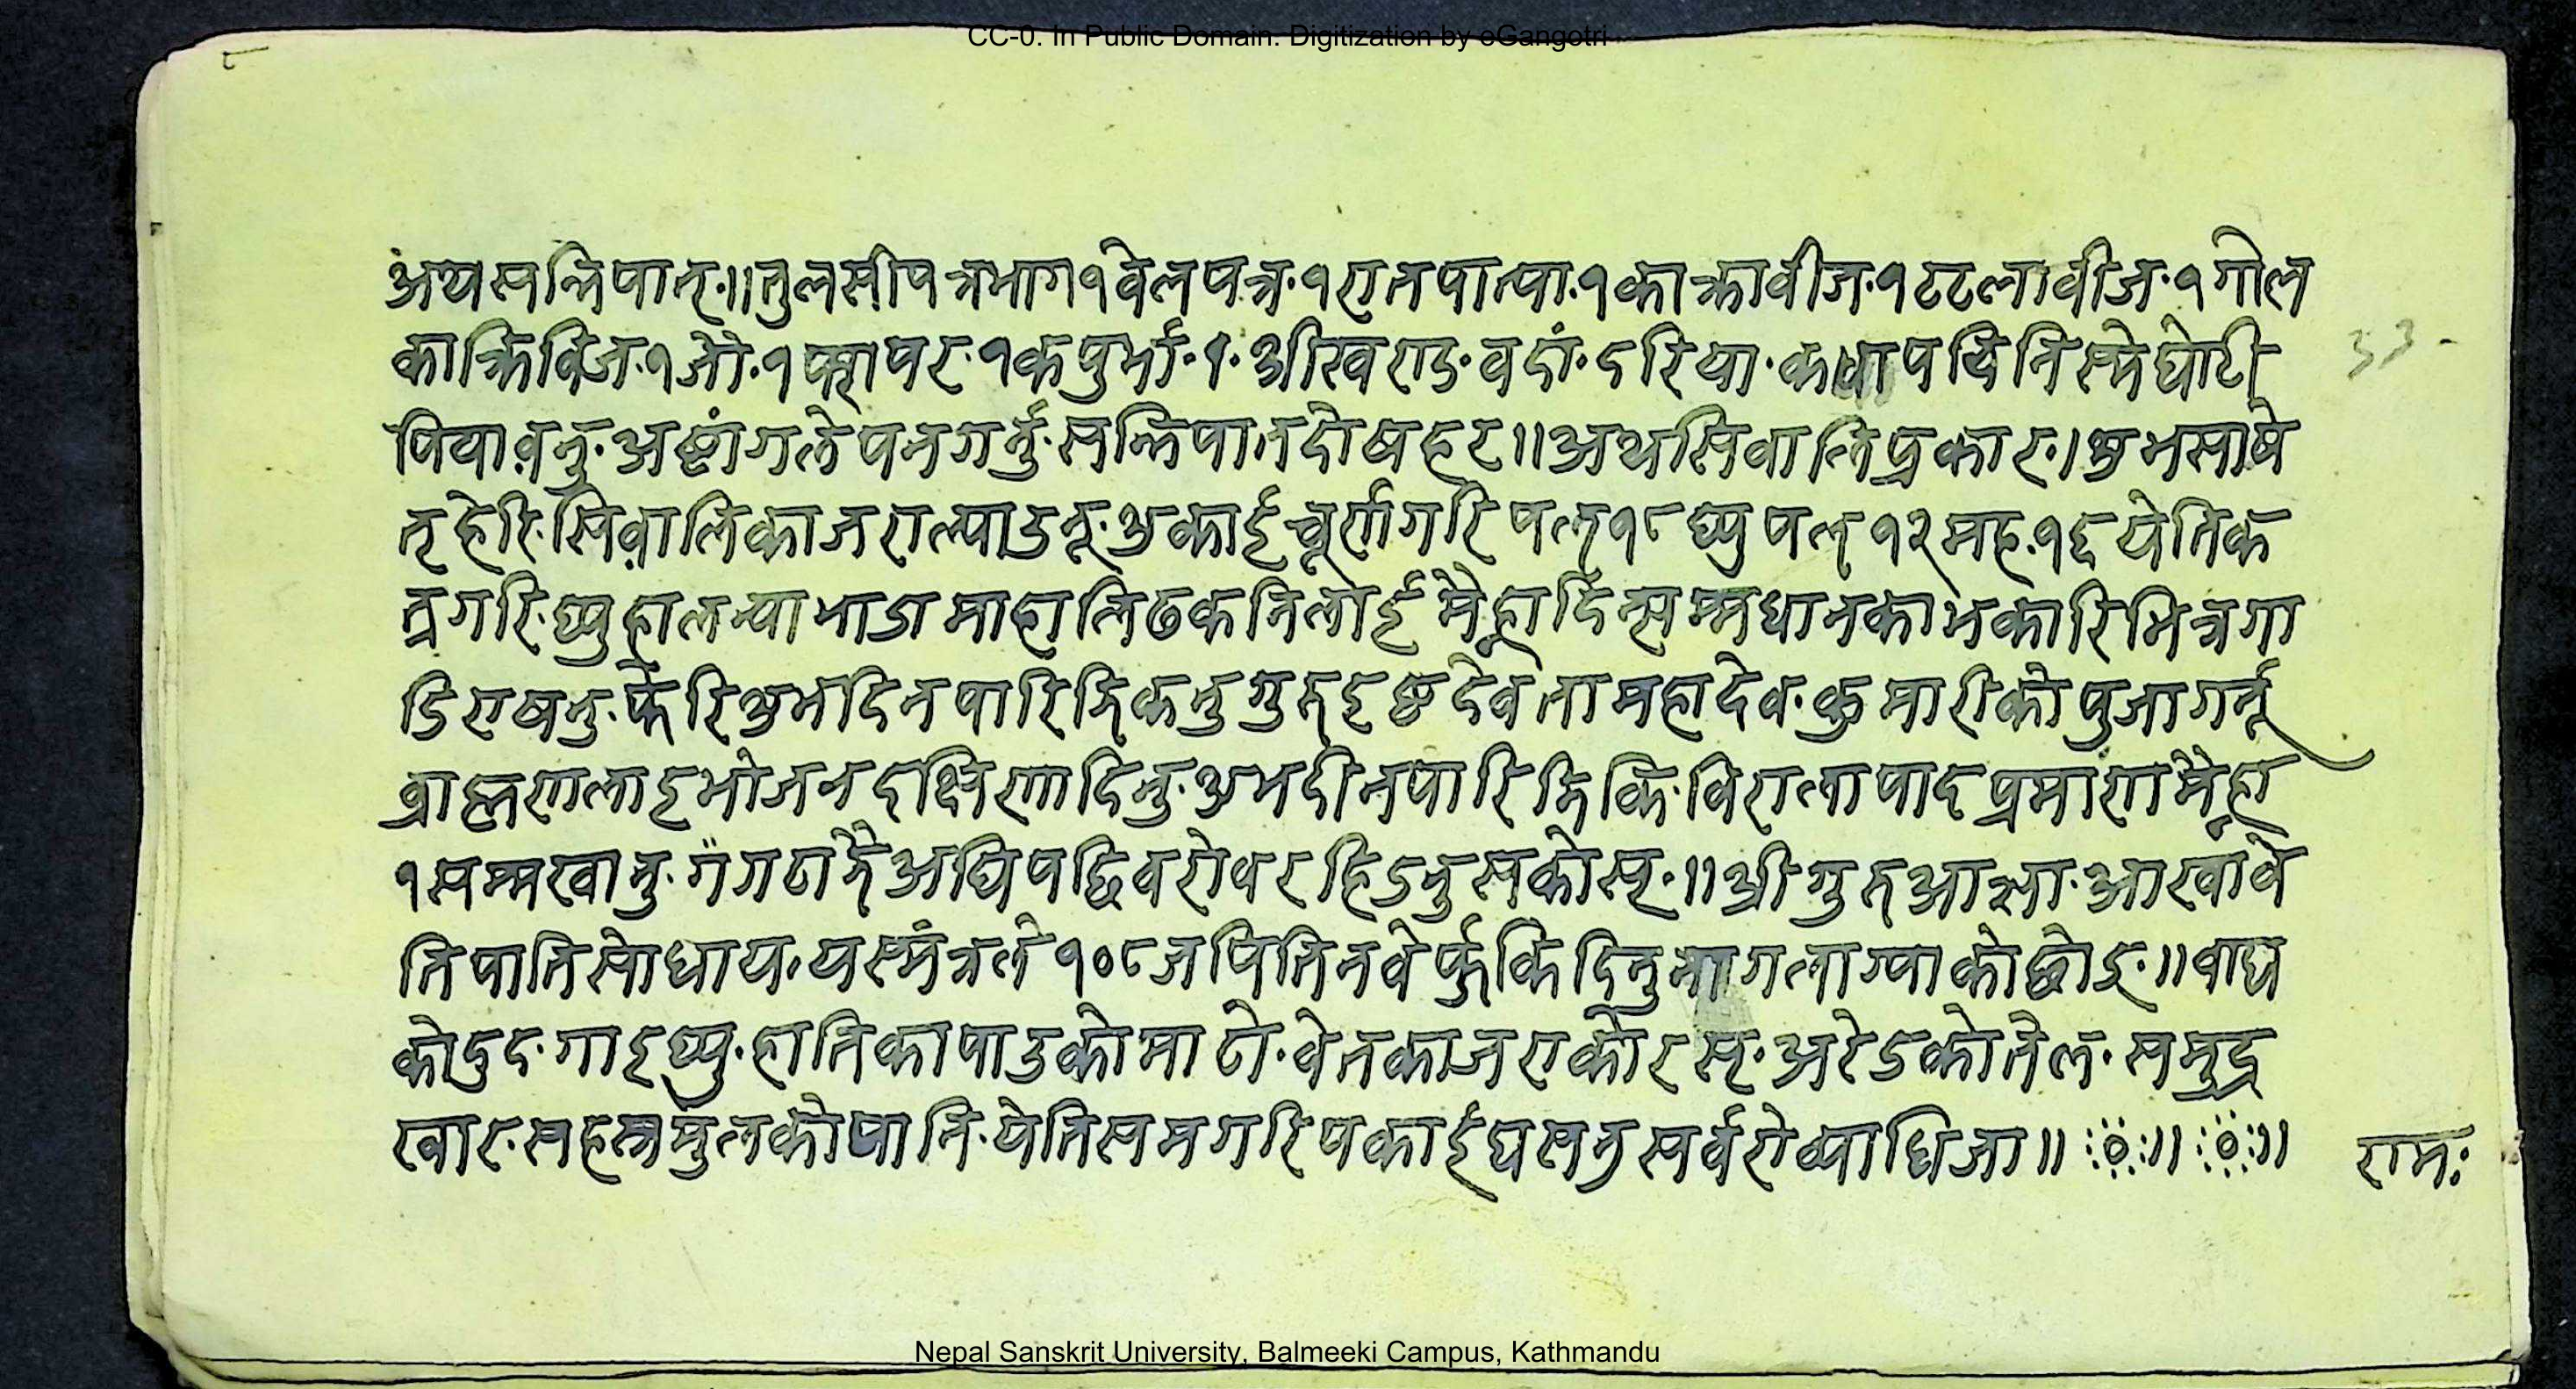 CC-0. In Public Domain. Digitization by eGangotri
अथ सन्निपात्.॥ तुलसीपत्र भाग १ वेलपत्र.१ रातपात्पा.१ काक्रावीज.१ टटलावीज.१ गोल
काक्रिविज.१ जौ.१ कपुर्भा.१. श्रीखराड. घोटी
पियावनु. अष्टांगलेपन गर्नु. सन्निपात दोष हर॥ अथ सिवालि प्रकार.। शुभसाषे
तृ हेरि. सिवालिका जरा ल्पाउनू. शुकाई चूर्ण गरि पल् १८ घ्यु पल् १२ मह.१६ येतिक
त्र गरि. घ्यु हालन्या भाडामा हालि ढकनि लाई मैह्रा दिन् सम्म धानका भकारि भित्र गा
डि राषनु. फेरि शुभदिन पारि झिकनु गुरु इष्टदेवता महादेव. कुमारीको पुजा गर्नू
व्राह्मणलाइ भोजन दक्षिणा दिनु. शुभदीन पारि झिकि. विरालापाद प्रमाण मैह्रा
१ सम्म खानु. अघि पछि वरोवर हिडनु सकोस्.॥ श्री गुरु आज्ञा. आखा वे
ति पाति सो धाय, यस् मंत्रले १०८ जपि तिन वेर् फुकि दिनु लाग्याको छोड्.॥ वाघ
को दुद. गाइ घ्यु. हातिका पाउको माटो. वेतका जराको रस्. अरेडको तेल. समुद्र
खार. सहस्रमुलको पानि. येति सम गरि पकाई घसनु सर्व रोव्याधि जा॥ ॥ ॥
रामः
33-
Nepal Sanskrit University, Balmeeki Campus, Kathmandu